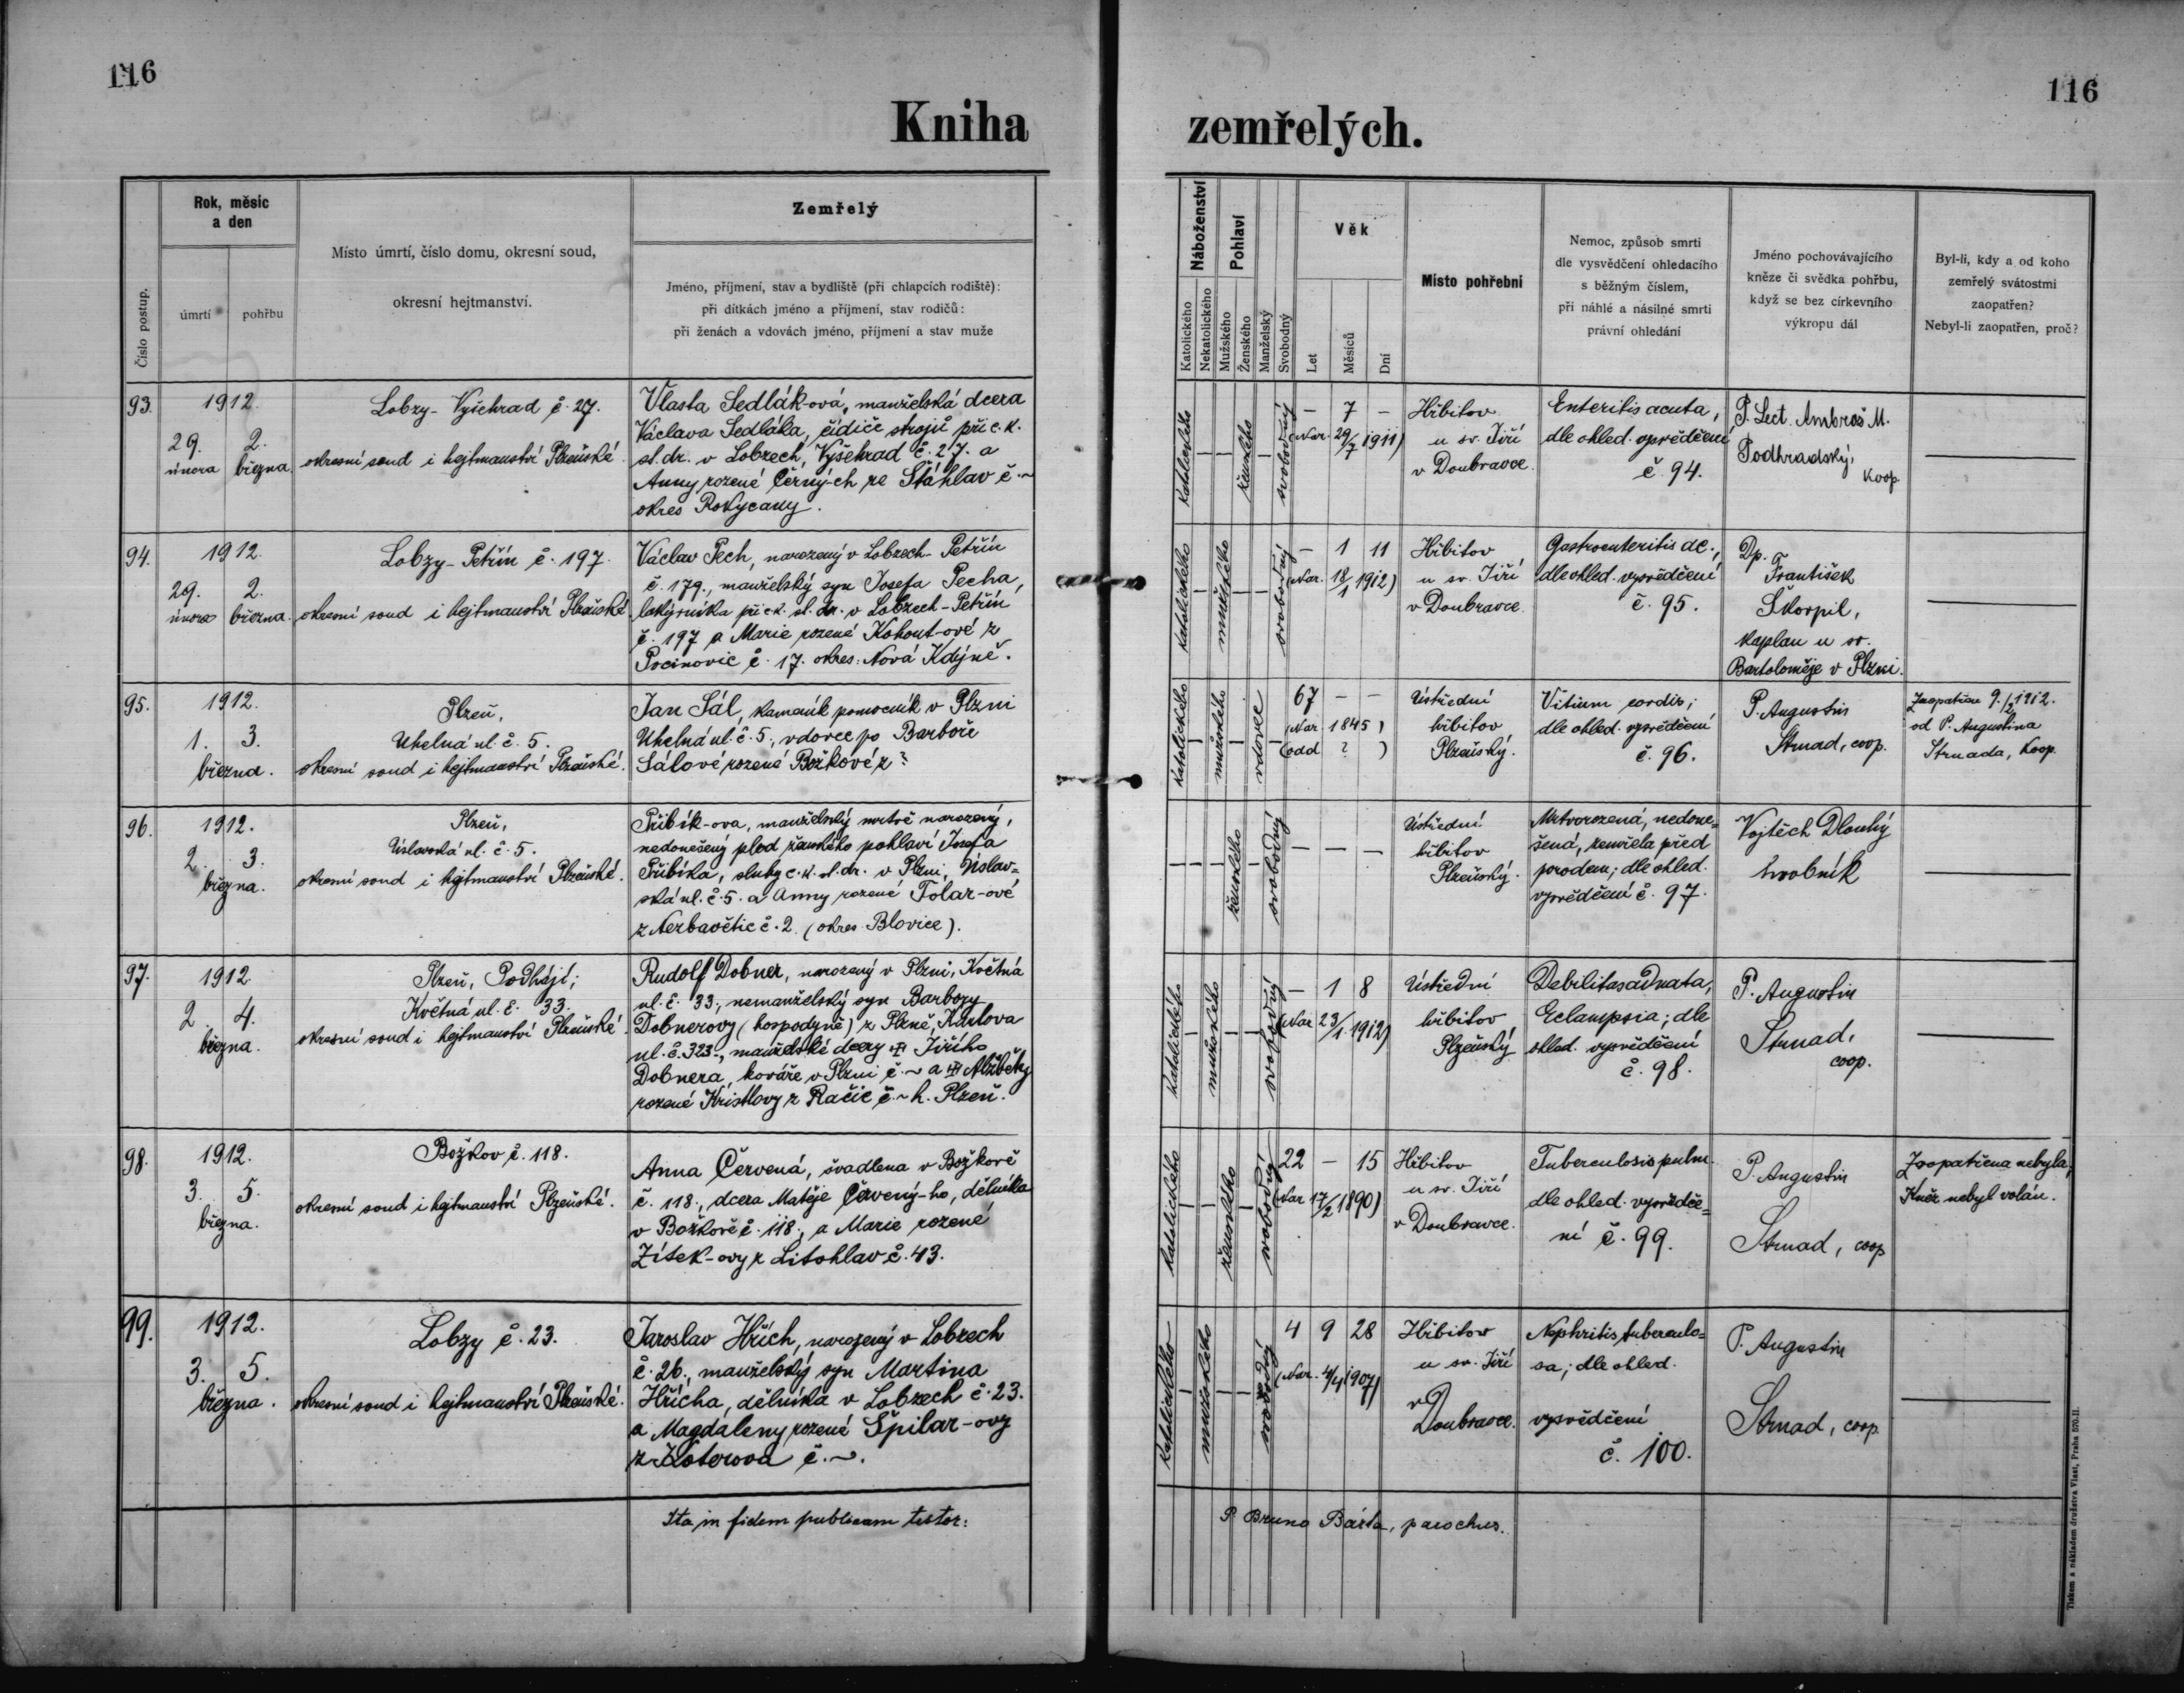 116
116
Kniha zemřelých.
Číslo postup.
Rok, měsíc
a den
úmrtí
pohřbu
Místo úmrtí, číslo domu, okresní soud,
okresní hejtmanství.
Zemřelý
Jméno, příjmení, stav a bydliště (při chlapcích rodiště):
při dítkách jméno a příjmení, stav rodičů:
při ženách a vdovách jméno, příjmení a stav muže
Náboženství
Katolického
Nekatolického
Pohlaví
Mužského
Ženského
Manželský
Svobodný
Věk
Let
Měsíců
Dní
Místo pohřební
Nemoc, způsob smrti
dle vysvědčení ohledacího
s běžným číslem,
při náhlé a násilné smrti
právní ohledání
Jméno pochovávajícího
kněze či svědka pohřbu,
když se bez církevního
výkropu dál
Byl-li, kdy a od koho
zemřelý svátostmi
zaopatřen?
Nebyl-li zaopatřen, proč?
93.
1912.
29. 2.
února března
Lobzy - Vyšehrad č. 27.
okresní soud i hejtmanství Plzeňské
Vlasta Sedlák-ová, manželská dcera
Václava Sedláka, řidiče strojů při c.k.
st. dr. v Lobzech, Vyšehrad č. 27. a
Anny rozené Černý-ch ze Šťáhlav č. ~
okres Rokycany.
katolického
ženského
svobodný
– 7 –
(Nar. 29/7 1911)
Hřbitov
u sv. Jiří
v Doubravce.
Enteritis acuta,
dle ohled. vysvědčení
č. 94.
P. Lect. Ambrož M.
Podhradský,
koop.
94.
1912.
29. 2.
února března.
Lobzy - Petřín č. 197.
okresní soud i hejtmanství Plzeňské
Václav Pech, narozený v Lobzech - Petřín
č. 179., manželský syn Josefa Pecha,
lakýrníka při c.k. st. dr. v Lobzech - Petřín
č. 197 a Marie rozené Kohout-ové z
Pocinovic č. 17. okres: Nová Kdýně.
katolického
mužského
svobodný
– 1 11
(Nar. 18/1 1912)
Hřbitov
u sv. Jiří
v Doubravce.
Gastroenteritis ac.,
dle ohled. vysvědčení
č. 95.
Dp.
František
Škorpil,
kaplan u sv.
Bartoloměje v Plzni.
95.
1912.
1. 3.
března.
Plzeň,
Uhelná ul. č. 5.
okresní soud i hejtmanství Plzeňské.
Jan Sál, kameník pomocník v Plzni
Uhelná ul. č. 5., vdovec po Barboře
Sálové rozené Božkové z ?
katolického
mužského
vdovec
67 – –
(Nar. 1845)
(odd ? )
Ústřední
hřbitov
Plzeňský.
Vitium cordis;
dle ohled. vysvědčení
č. 96.
P. Augustin
Strnad, coop.
Zaopatřen 9./2 1912.
od P. Augustina
Strnada, koop.
96.
1912.
2. 3.
března.
Plzeň,
Úslavská ul. č. 5.
okresní soud i hejtmanství Plzeňské.
Přibík-ova, manželský mrtvě narozený,
nedonešený plod ženského pohlaví Josefa
Přibíka, sluhy c.k. st. dr. v Plzni, Úslav=
ská ul. č. 5. a Anny rozené Tolar-ové
z Nezbavětic č. 2. (okres Blovice).
ženského
svobodný
– – –
Ústřední
hřbitov
Plzeňský.
Mrtvorozená, nedone=
šená, zemřela před
porodem; dle ohled.
vysvědčení č. 97.
Vojtěch Dlouhý
hrobník
97.
1912
2. 4.
března.
Plzeň, Podhájí;
Květná ul. č. 33.
okresní soud i hejtmanství Plzeňské.
Rudolf Dobner, narozený v Plzni, Květná
ul. č. 33., nemanželský syn Barbory
Dobnerovy (hospodyně) z Plzně, Karlova
ul. č. 323., manželské dcery ✝ Jiřího
Dobnera, kováře v Plzni č. ~ a ✝ Alžběty
rozené Kristlovy z Račic č. ~ h. Plzeň.
katolického
mužského
svobodný
– 1 8
(Nar 23/1 1912)
Ústřední
hřbitov
Plzeňský
Debilitas adnata,
Eclampsia; dle
ohled. vysvědčení
č. 98.
P. Augustin
Strnad,
coop.
98.
1912.
3. 5.
března.
Božkov č. 118.
okresní soud i hejtmanství Plzeňské.
Anna Červená, švadlena v Božkově
č. 118., dcera Matěje Červený-ho, dělníka
v Božkově č. 118., a Marie rozené
Zítek-ovy z Litohlav č. 43.
katolického
ženského
svobodný
22 – 15
(Nar 17/2 1890)
Hřbitov
u sv. Jiří
v Doubravce.
Tuberculosis pulm.
dle ohled. vysvědče=
ní č. 99.
P. Augustin
Strnad, coop
Zaopatřena nebyla,
Kněz nebyl volán.
99.
1912.
3. 5.
března.
Lobzy č. 23.
okresní soud i hejtmanství Plzeňské.
Jaroslav Hřích, narozený v Lobzech
č. 26., manželský syn Martina
Hřícha, dělníka v Lobzech č. 23.
a Magdaleny rozené Špilar-ovy
z Koterova č. ~.
katolického
mužského
svobodný
4 9 28
(Nar. 4/4 1907)
Hřbitov
u sv. Jiří
v
Doubravce.
Nephritis tuberculo=
sa; dle ohled.
vysvědčení
č. 100.
P. Augustin
Strnad, coop.
Ita in fidem publicam testor:
P. Bruno Bárta, parochus.
Tiskem a nákladem družstva Vlast, Praha 570-II.